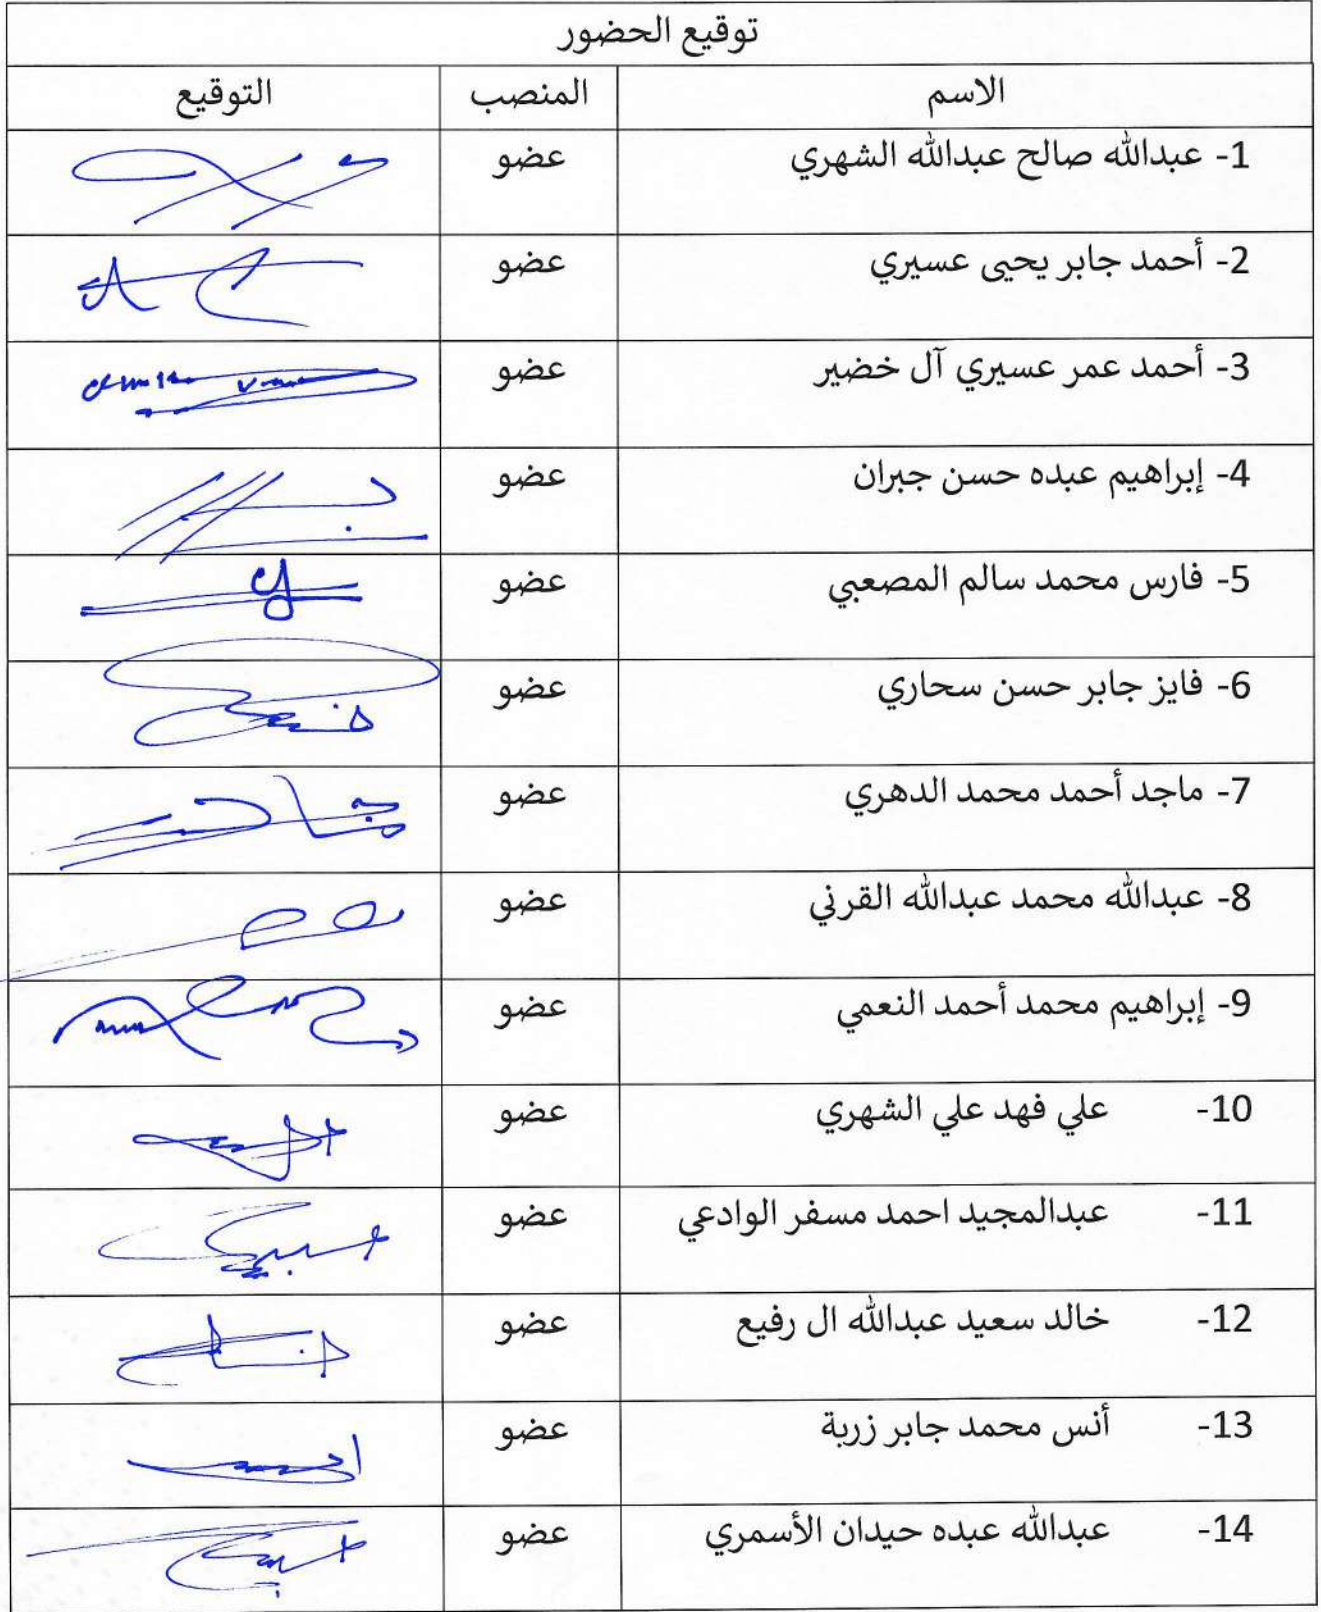 توقيع الحضور
الاسم المنصب التوقيع
1- عبدالله صالح عبدالله الشهري عضو
2- أحمد جابر يحيى عسيري عضو
3- أحمد عمر عسيري آل خضير عضو
4- إبراهيم عبده حسن جبران عضو
5- فارس محمد سالم المصعبي عضو
6- فايز جابر حسن سحاري عضو
7- ماجد أحمد محمد الدهري عضو
8- عبدالله محمد عبدالله القرني عضو
9- إبراهيم محمد أحمد النعمي عضو
10- علي فهد علي الشهري عضو
11- عبدالمجيد احمد مسفر الوادعي عضو
12- خالد سعيد عبدالله ال رفيع عضو
13- أنس محمد جابر زربة عضو
14- عبدالله عبده حيدان الأسمري عضو